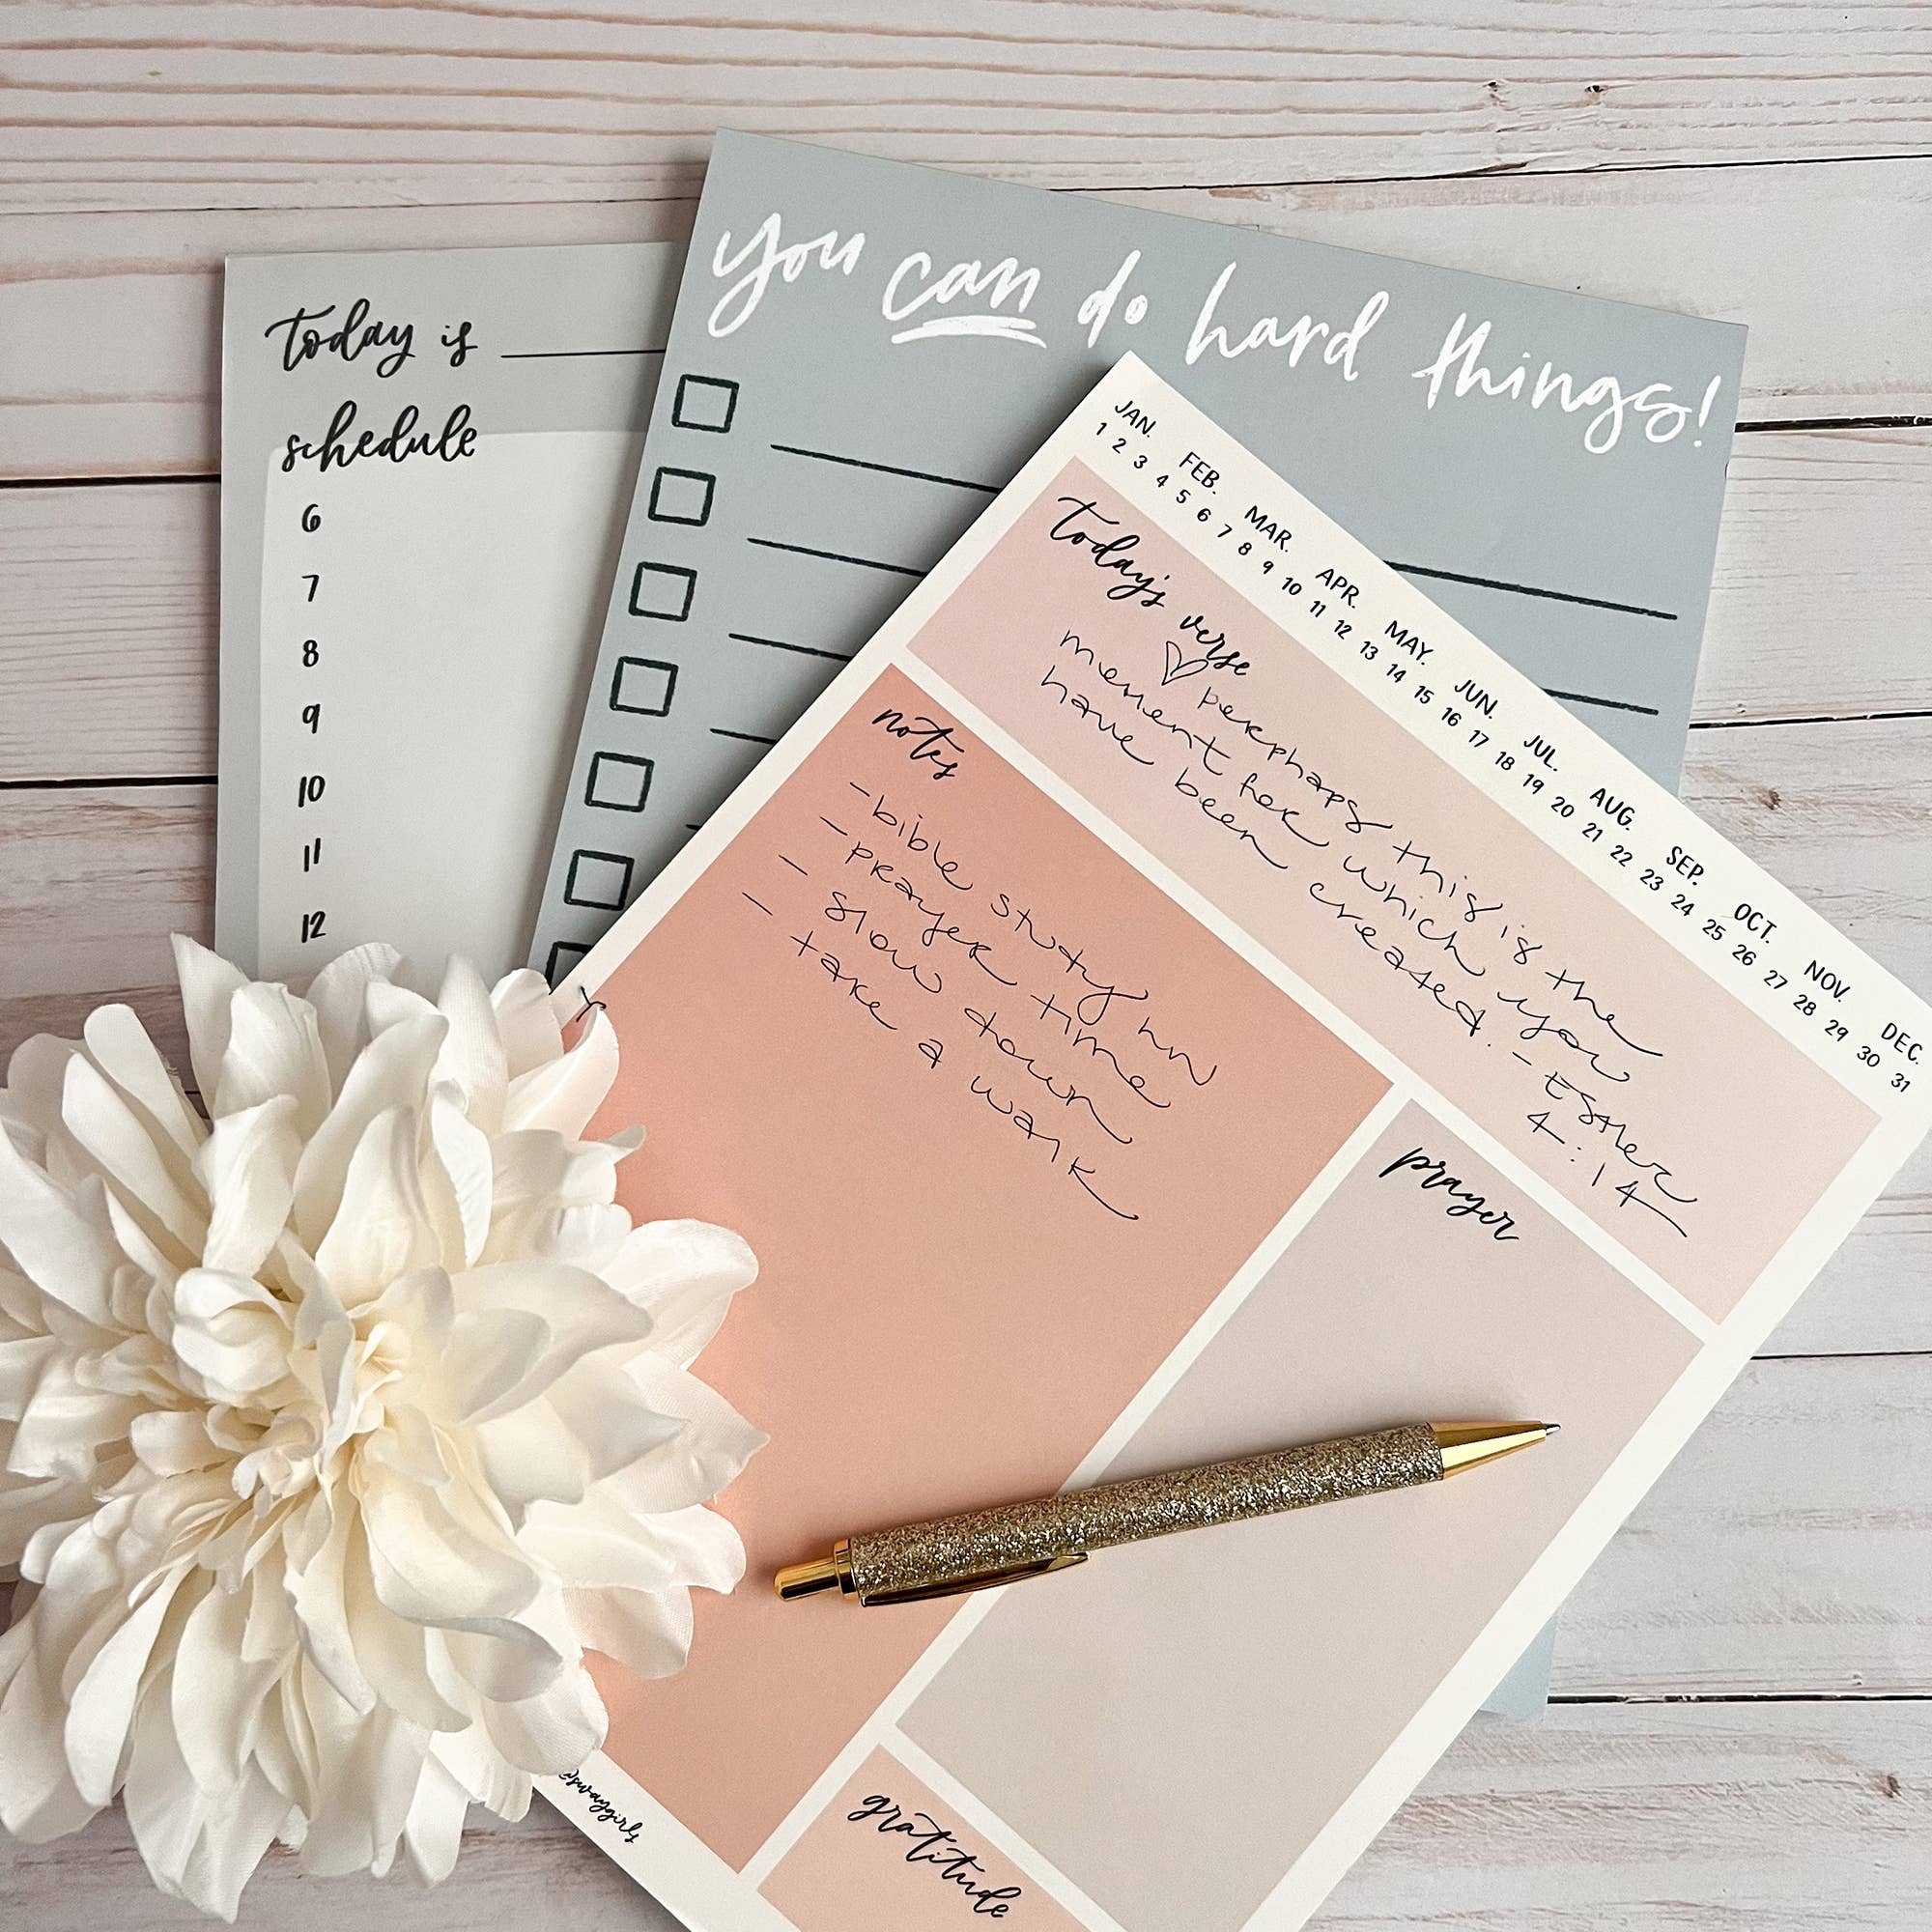 today is
schedule
6
7
8
9
10
11
12
you can do hard things!
JAN. FEB. MAR. APR. MAY. JUN. JUL. AUG. SEP. OCT. NOV. DEC.
1 2 3 4 5 6 7 8 9 10 11 12 13 14 15 16 17 18 19 20 21 22 23 24 25 26 27 28 29 30 31
today's verse
♡ perphaps this is the
moment for which you
have been created. - Esther
4:14
notes
- bible study hw
- prayer time
- slow down
- take a walk
prayer
gratitude
@swaygirls